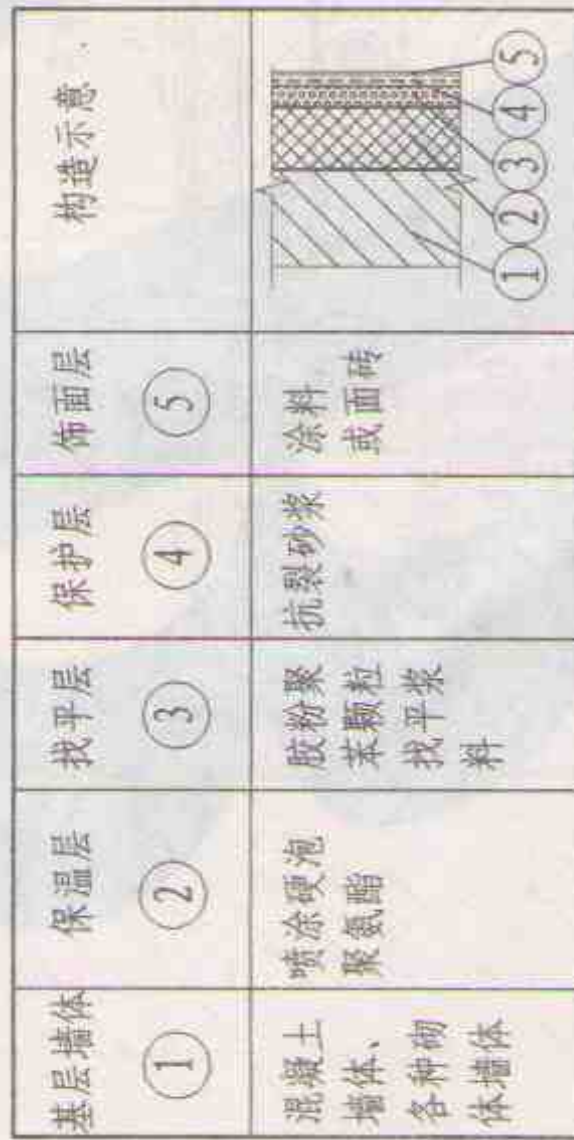 基层墙体
①
保温层
②
找平层
③
保护层
④
饰面层
⑤
构造示意
混凝土
墙体、
各种砌
体墙体
喷涂硬泡
聚氨酯
胶粉聚
苯颗粒
找平浆
料
抗裂砂浆
涂料
或面砖
①
②
③
④
⑤